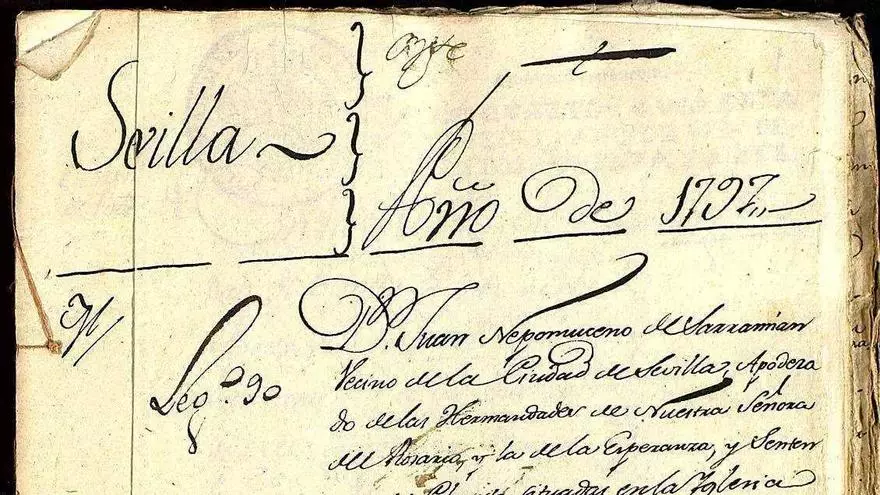 Sevilla
Año De 1797
Leg.º 90
D.n Juan Nepomuceno de Sarramian
Vecino de la Ciudad de Sevilla, Apodera
do de las Hermandades de Nuestra Señora
del Rosario, y la de la Esperanza, y Senten
situadas en la Iglesia